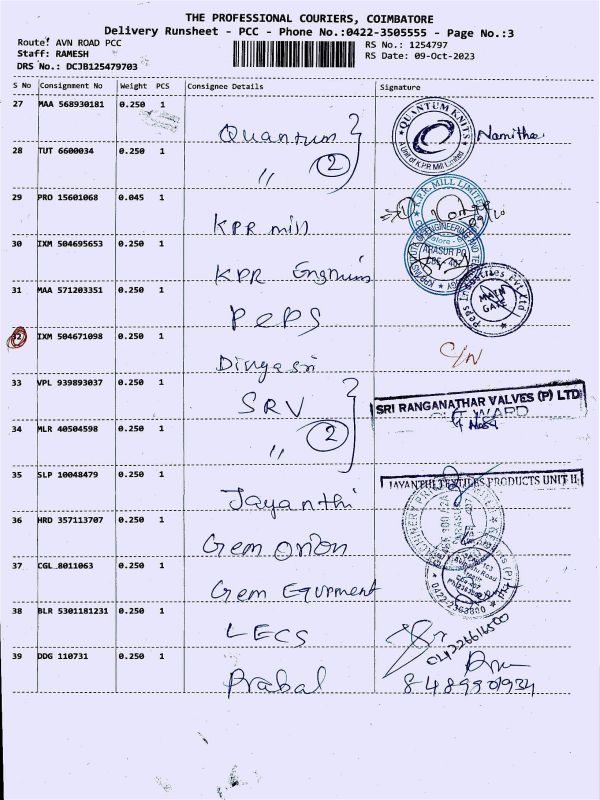 THE PROFESSIONAL COURIERS, COIMBATORE
Delivery Runsheet - PCC - Phone No.:0422-3505555 - Page No.:3
Route: AVN ROAD PCC
RS No.: 1254797
Staff: RAMESH
RS Date: 09-Oct-2023
DRS No.: DCJB125479703
S No Consignment No Weight PCS Consignee Details Signature
27 MAA 568930181 0.250 1 Quantum QUANTUM KNITS A Unit of K.P.R Mill Limited Namitha
28 TUT 6600034 0.250 1 " 2
29 PRO 15601068 0.045 1 KPR mill K.P.R. MILL LIMITED
30 IXM 504695653 0.250 1 KPR ARASUR PO
31 MAA 571203351 0.250 1 PePS Peps Industries Pvt Ltd MAIN GATE
32 IXM 504671098 0.250 1 Divyasri C/N
33 VPL 939893037 0.250 1 SRV SRI RANGANATHAR VALVES (P) LTD
34 MLR 40504598 0.250 1 " 2
35 SLP 10048479 0.250 1 Jayanthi JAYANTHI TEXTILES PRODUCTS UNIT II
36 HRD 357113707 0.250 1 Gem orion
37 CGL 8011063 0.250 1 Gem Equrment 0422-2363800
38 BLR 5301181231 0.250 1 LECS
39 DDG 110731 0.250 1 Prabal